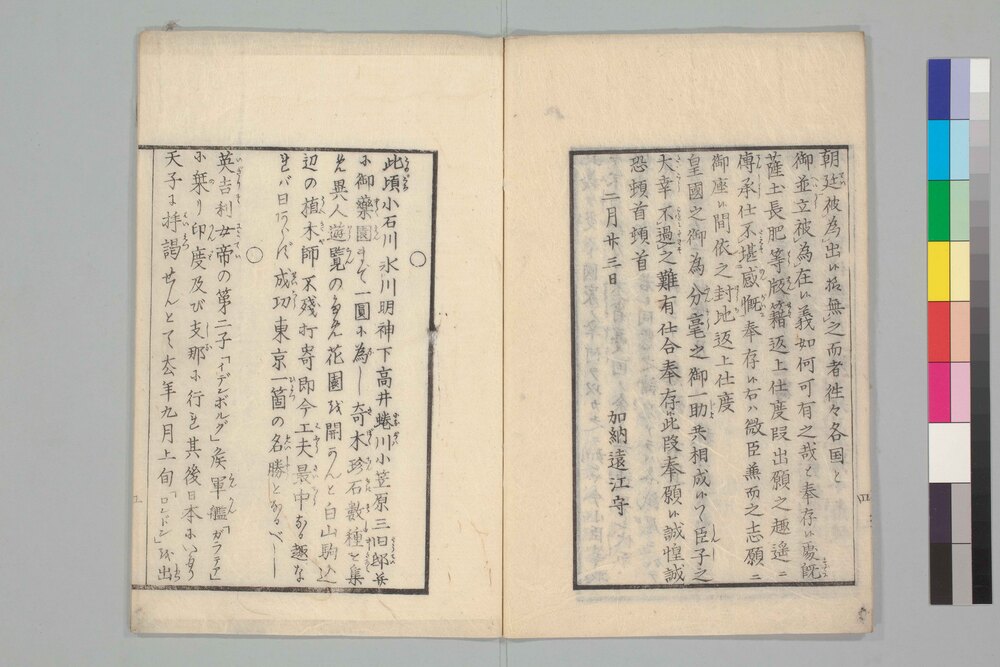 朝廷被為出候招無之而者徃々各国と
御並立被為在候義如何可有之哉と奉存候処既
薩土長肥等版籍返上仕度段出願之趣遥ニ
傳承仕不堪感慨奉存候右ハ微臣兼而之志願ニ
御座候間依之封地返上仕度
皇國之御為分毫之御一助共相成候ハヽ臣子之
大幸不過之難有仕合奉存候此段奉願候誠惶誠
恐頓首頓首
二月廿三日
加納遠江守
四
〇
此頃小石川氷川明神下高井蜷川小笠原三旧邸并
に御藥園まで一圓に為し奇木珍石數種を集
め異人遊覧の為め花園を開かんと白山駒込
辺の植木師不残打寄即今工夫最中なる趣な
れバ日ならず成功東京一箇の名勝となるべし
〇
英吉利女帝の第二子「イデンボルグ」矦軍艦「ガラテア」
に乗り印度及び支那に行き其後日本にいたり
天子に拝謁せんとて去年九月上旬「ロンドン」を出